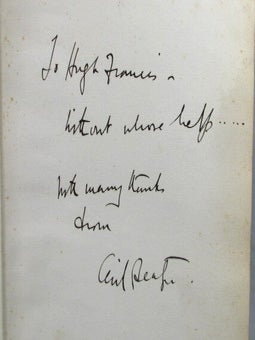 To Hugh Francis ~
without whose help.....
with many thanks
from
Cecil Beaton.